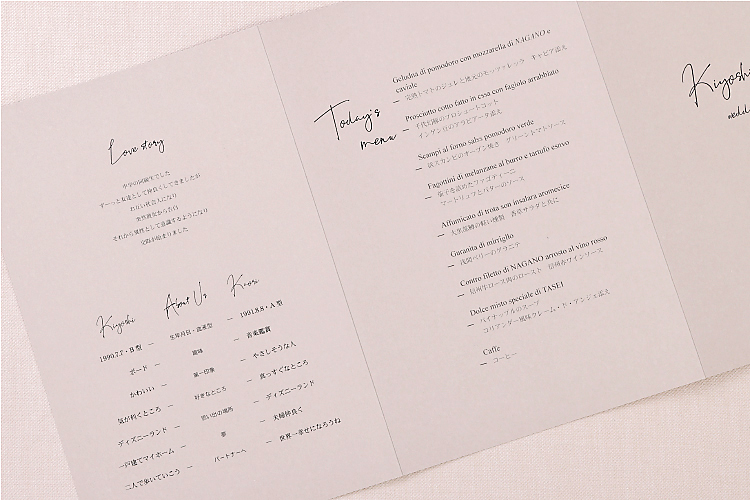 Love story
中学の同級生でした
ずーっと友達として仲良くしてきましたが
お互い社会人になり
突然彼女から告白
それから異性として意識するようになり
交際が始まりました
Kiyoshi
About Us
Kaori
1990.7.7・B型 ― 生年月日・血液型 ― 1991.8.8・A型
ボード ― 趣味 ― 音楽鑑賞
かわいい ― 第一印象 ― やさしそうな人
気が利くところ ― 好きなところ ― 真っすぐなところ
ディズニーランド ― 思い出の場所 ― ディズニーランド
一戸建てマイホーム ― 夢 ― 夫婦仲良く
二人で歩いていこう ― パートナーへ ― 世界一幸せになろうね
Today's
menu
Geludna di pomodoro con mozzarella di NAGANO e
caviale
― 完熟トマトのジュレと地元のモッツァレッラ キャビア添え
Prosciutto cotto fatto in essa con fagiolo arrabbiato
― 千代幻豚のプロシュートコット
インゲン豆のアラビアータ添え
Scampi al forno salss pomodoro verde
― 活スカンピのオーブン焼き グリーントマトソース
Fagottini di melanzane al burro e tartufo esnvo
― 茄子を詰めたファゴティーニ
アートリュフとバターのソース
Affumicato di trota son insalara aromecice
― 大王岩魚の軽い燻製 香草サラダと共に
Guranita di mirriglio
― 浅間ベリーのグラニテ
Contro filetto di NAGANO arrosto al vino rosso
― 信州牛ロース肉のロースト 信州赤ワインソース
Dolce misto speciale di TASEI
― パイナップルのスープ
コリアンダー風味クレーム・ド・アンジュ添え
Caffe
― コーヒー
Kiyoshi